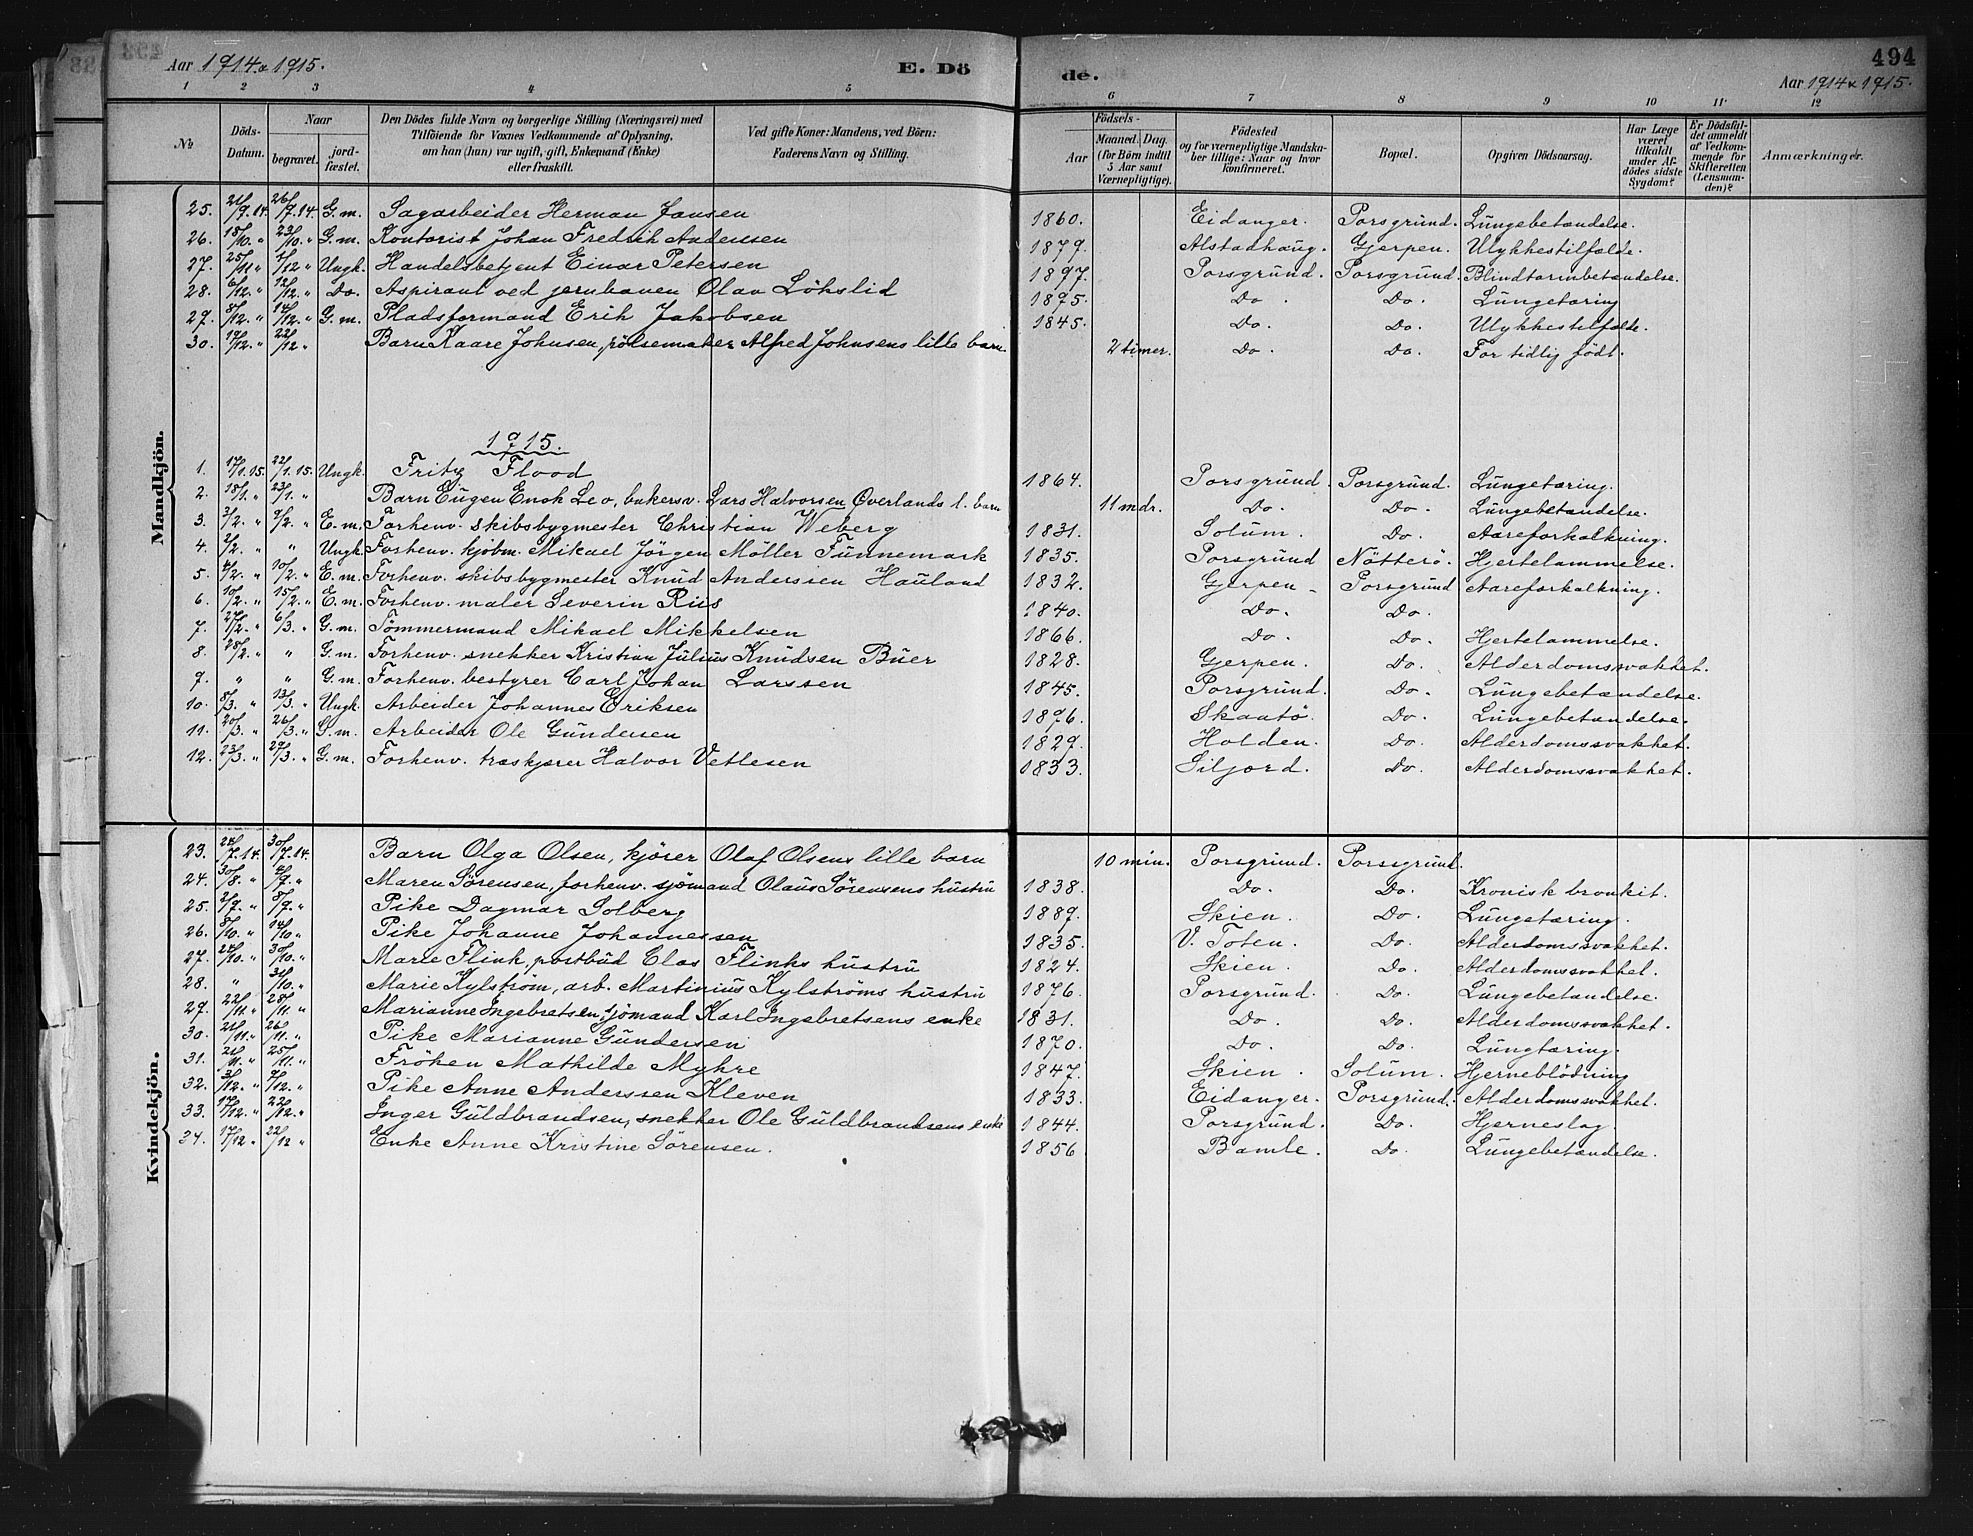 494
Aar 1914 & 1915. E. Dö de. Aar 1914 & 1915.
1 2 3 4 5 6 7 8 9 10 11 12
№ Döds-Datum. Naar begravet. jord-fæstet. Den Dödes fulde Navn og borgerlige Stilling (Næringsvei) med Tilföiende for Voxnes Vedkommende af Oplysning, om han (hun) var ugift, gift, Enkemand (Enke) eller fraskilt. Ved gifte Koner: Mandens, ved Börn: Faderens Navn og Stilling. Födsels- Aar Maaned. Dag. (for Börn indtil 5 Aar samt Værnepligtige). Födested og for værnepligtige Mandska-ber tillige: Naar og hvor konfirmeret. Bopæl. Opgiven Dödsaarsag. Har Læge været tilkaldt under Af-dödes sidste Sygdom? Er Dödsfal-det anmeldt af Vedkom-mende for Skifteretten (Lensman-den)? Anmærkninger.
Mandkjön.
25. 21/9.14. 26/9.14. G.m. Sagarbeider Herman Jansen 1860. Eidanger. Porsgrund. Lungebetændelse.
26. 18/10. " 23/10. " G.m. Kontorist Johan Fredrik Andersen 1879. Alstadhaug. Gjerpen. Ulykkestilfælde.
27. 25/11 " 1/12 " Ungk. Handelsbetjent Einar Petersen 1897. Porsgrund. Porsgrund. Blindtarmbetændelse.
28. 6/12. " 12/12. " Do. Aspirant ved jernbanen Olav Lökslid 1895. Do. Do. Lungetæring
29. 8/12. " 14/12. " G.m. Pladsformand Erik Jakobsen 1845. Do. Do. Ulykkestilfælde.
30. 17/12. " 22/12 " Barn Kaare Johnsen, pölsemaker Alfred Johnsens lille barn. 2 timer. Do. Do. For tidlig födt.
1915.
1. 17/1.15. 22/1.15. Ungk. Fritz Flood 1864. Porsgrund. Porsgrund. Lungetæring.
2. 18/1. " 23/1. " Barn Eugen Enok Leo, bakersv. Lars Halvorsen Överlands l. barn 11 mdr. Do. Do. Lungebetændelse.
3. 3/2. " 9/2. " E.m. Forhenv. skibsbygmester Christian Weberg 1831. Solum. Do. Aareforkalkning.
4. 2/2. " " Ungk. Forhenv. kjöbm. Mikael Jörgen Möller Funnemark 1835. Porsgrund Nötterö. Hjertelammelse.
5. 4/2. " 10/2. " E.m. Forhenv. skibsbygmester Knud Anderssen Hauland 1832. Gjerpen. Porsgrund Aareforkalkning.
6. 10/2. " 15/2. " E.m. Forhenv. maler Severin Riis 1840. Do. Do.
7. 27/2. " 6/3. " G.m. Tömmermand Mikael Mikkelsen 1866. Do. Do. Hjertelammelse.
8. 28/2. " " G.m. Forhenv. snekker Kristian Julius Knudsen Buer 1828. Gjerpen. Do. Alderdomssvakhet.
9. " " G.m. Forhenv. bestyrer Carl Johan Larssen 1845. Porsgrund. Do. Lungebetændelse.
10. 8/3. " 13/3. " Ungk. Arbeider Johannes Eriksen 1896. Skaatö. Do. Lungebetændelse.
11. 20/3. " 26/3. " G.m. Arbeider Ole Gundersen 1829. Holden. Do. Alderdomssvakhet.
12. 23/3. " 29/3. " G.m. Forhenv. træskjærer Halvor Vetlesen 1833. Siljord. Do. Alderdomssvakhet.
Kvindekjön.
23. 24/7.14. 30/7.14. Barn Olga Olsen, kjörer Olaf Olsens lille barn 10 min. Porsgrund. Porssgrund.
24. 30/8. " 4/9. " Maren Sörensen, forhenv. sjömand Olaus Sörensens hustru 1838. Do. Do. Kronisk bronkit.
25. 2/9. " 8/9. " Pike Dagmar Solberg 1889. Skien. Do. Lungetæring.
26. 8/10. " 14/10 " Pike Johanne Johannessen 1835. V. Toten. Do. Alderdomssvakhet.
27. 24/10. " 30/10. " Marie Flink, postbud Clas Flinks hustru 1824. Skien. Do. Alderdomssvakhet.
28. " 31/10. " Marie Kylström, arb. Martinius Kylströms hustru 1876. Porsgrund. Do. Lungebetændelse.
29. 22/11. " 28/11. " Marianne Ingebretsen, sjömand Karl Ingebretsens enke 1831. Do. Do. Alderdomssvakhet.
30. 21/11. " 26/11. " Pike Marianne Gundersen 1870. Do. Do. Lungtæring.
31. 21/11. " 25/11. " Fröken Mathilde Myhre 1847. Skien. Solum. Hjerneblödning
32. 3/12. " 9/12. " Pike Anne Anderssen Kleven 1833. Eidanger. Porsgrund. Alderdomssvakhet.
33. 17/12. " 22/12. " Inger Guldbrandsen, snekker Ole Guldbrandsens enke 1844. Porsgrund. Do. Hjerneslag.
34. 17/12 " 22/12 " Enke Anne Kristine Sörensen. 1856 Bamle. Do. Lungebetændelse.